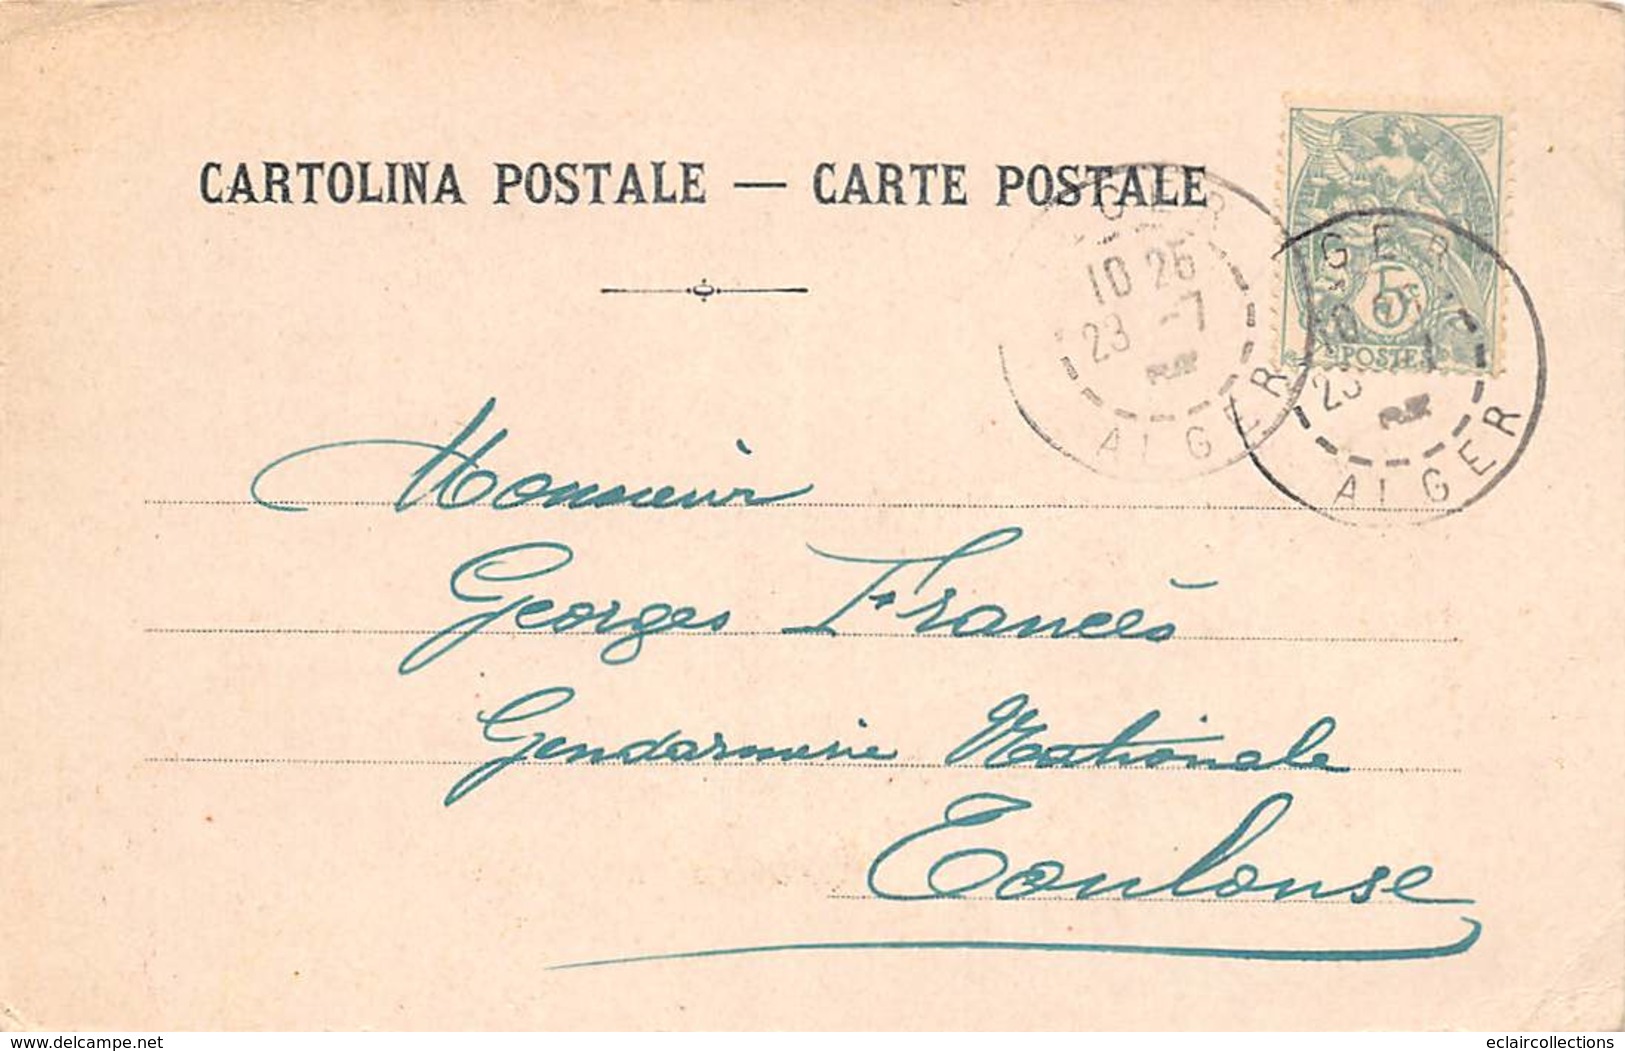 CARTOLINA POSTALE — CARTE POSTALE
ALGER
10 25
23 -7
ALGER
5c
POSTES
ALGER
Monsieur
Georges Francès
Gendarmerie Nationale
Toulouse
www.delcampe.net
eclaircollections